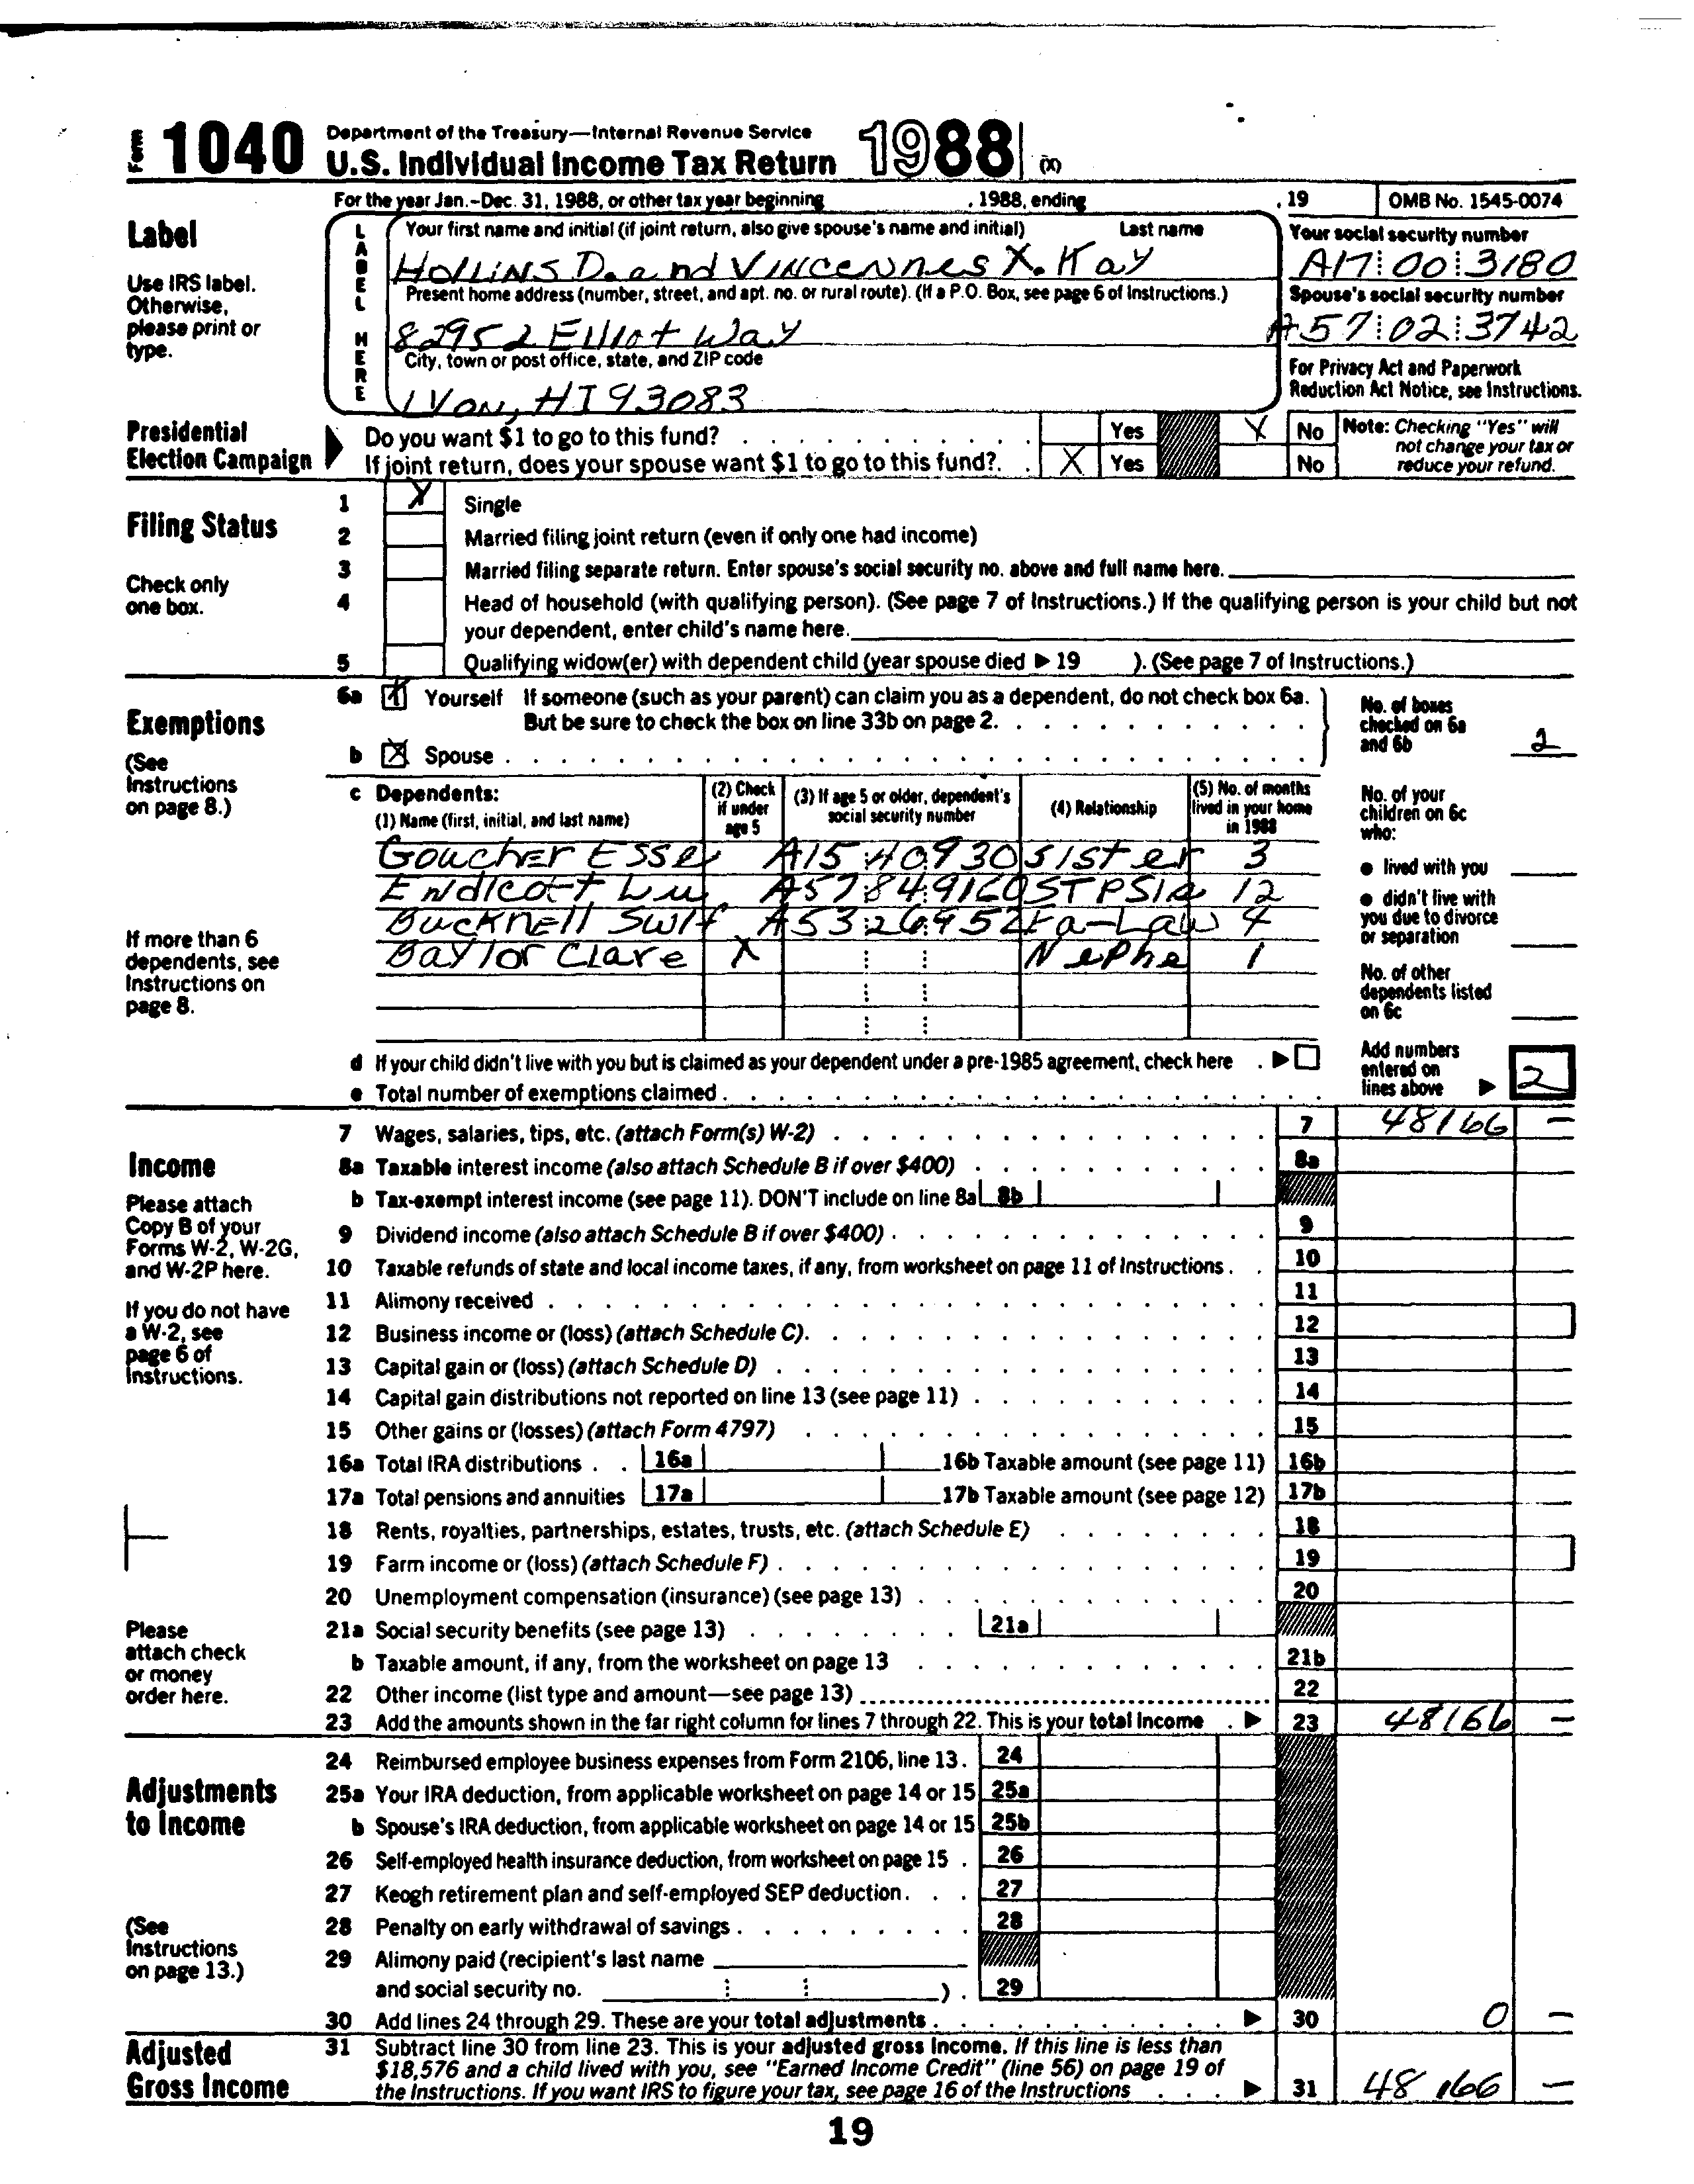 Form 1040 Department of the Treasury—Internal Revenue Service
U.S. Individual Income Tax Return 1988 (X)
For the year Jan.-Dec. 31, 1988, or other tax year beginning , 1988, ending , 19 OMB No. 1545-0074
Label
Use IRS label.
Otherwise,
please print or
type.
LABEL HERE
Your first name and initial (if joint return, also give spouse's name and initial) Last name
HOLLINS D. and VINCENNES X. KAY
Your social security number
A17 00 3180
Present home address (number, street, and apt. no. or rural route). (If a P.O. Box, see page 6 of Instructions.)
82952 Elliot Way
Spouse's social security number
A57 02 3742
City, town or post office, state, and ZIP code
IVON, HI 93083
For Privacy Act and Paperwork
Reduction Act Notice, see Instructions.
Presidential
Election Campaign
Do you want $1 to go to this fund? Yes X No
If joint return, does your spouse want $1 to go to this fund?. X Yes No
Note: Checking "Yes" will
not change your tax or
reduce your refund.
Filing Status
Check only
one box.
1 X Single
2 Married filing joint return (even if only one had income)
3 Married filing separate return. Enter spouse's social security no. above and full name here.
4 Head of household (with qualifying person). (See page 7 of Instructions.) If the qualifying person is your child but not
your dependent, enter child's name here.
5 Qualifying widow(er) with dependent child (year spouse died ▶ 19 ). (See page 7 of Instructions.)
Exemptions
(See
Instructions
on page 8.)
If more than 6
dependents, see
Instructions on
page 8.
6a Yourself If someone (such as your parent) can claim you as a dependent, do not check box 6a.
But be sure to check the box on line 33b on page 2.
b X Spouse
No. of boxes
checked on 6a
and 6b 2
c Dependents:
(1) Name (first, initial, and last name)
(2) Check
if under
age 5
(3) If age 5 or older, dependent's
social security number
(4) Relationship
(5) No. of months
lived in your home
in 1988
Goucher Esse A15 40 930 sister 3
Endicott Lu A57 84 9160 STPSIS 12
Bucknell Swif A53 26 952 Fa-Law 4
Baylor Clare X Nephe 1
No. of your
children on 6c
who:
● lived with you
● didn't live with
you due to divorce
or separation
No. of other
dependents listed
on 6c
d If your child didn't live with you but is claimed as your dependent under a pre-1985 agreement, check here ▶
e Total number of exemptions claimed
Add numbers
entered on
lines above ▶ 2
Income
Please attach
Copy B of your
Forms W-2, W-2G,
and W-2P here.
If you do not have
a W-2, see
page 6 of
Instructions.
Please
attach check
or money
order here.
7 Wages, salaries, tips, etc. (attach Form(s) W-2) 7 48166 —
8a Taxable interest income (also attach Schedule B if over $400) 8a
b Tax-exempt interest income (see page 11). DON'T include on line 8a 8b
9 Dividend income (also attach Schedule B if over $400) 9
10 Taxable refunds of state and local income taxes, if any, from worksheet on page 11 of Instructions 10
11 Alimony received 11
12 Business income or (loss) (attach Schedule C) 12
13 Capital gain or (loss) (attach Schedule D) 13
14 Capital gain distributions not reported on line 13 (see page 11) 14
15 Other gains or (losses) (attach Form 4797) 15
16a Total IRA distributions 16a 16b Taxable amount (see page 11) 16b
17a Total pensions and annuities 17a 17b Taxable amount (see page 12) 17b
18 Rents, royalties, partnerships, estates, trusts, etc. (attach Schedule E) 18
19 Farm income or (loss) (attach Schedule F) 19
20 Unemployment compensation (insurance) (see page 13) 20
21a Social security benefits (see page 13) 21a
b Taxable amount, if any, from the worksheet on page 13 21b
22 Other income (list type and amount—see page 13) 22
23 Add the amounts shown in the far right column for lines 7 through 22. This is your total income ▶ 23 48166 —
Adjustments
to Income
(See
Instructions
on page 13.)
24 Reimbursed employee business expenses from Form 2106, line 13. 24
25a Your IRA deduction, from applicable worksheet on page 14 or 15 25a
b Spouse's IRA deduction, from applicable worksheet on page 14 or 15 25b
26 Self-employed health insurance deduction, from worksheet on page 15 26
27 Keogh retirement plan and self-employed SEP deduction 27
28 Penalty on early withdrawal of savings 28
29 Alimony paid (recipient's last name
and social security no. ) 29
30 Add lines 24 through 29. These are your total adjustments ▶ 30 0 —
Adjusted
Gross Income
31 Subtract line 30 from line 23. This is your adjusted gross income. If this line is less than
$18,576 and a child lived with you, see "Earned Income Credit" (line 56) on page 19 of
the Instructions. If you want IRS to figure your tax, see page 16 of the Instructions ▶ 31 48 166 —
19